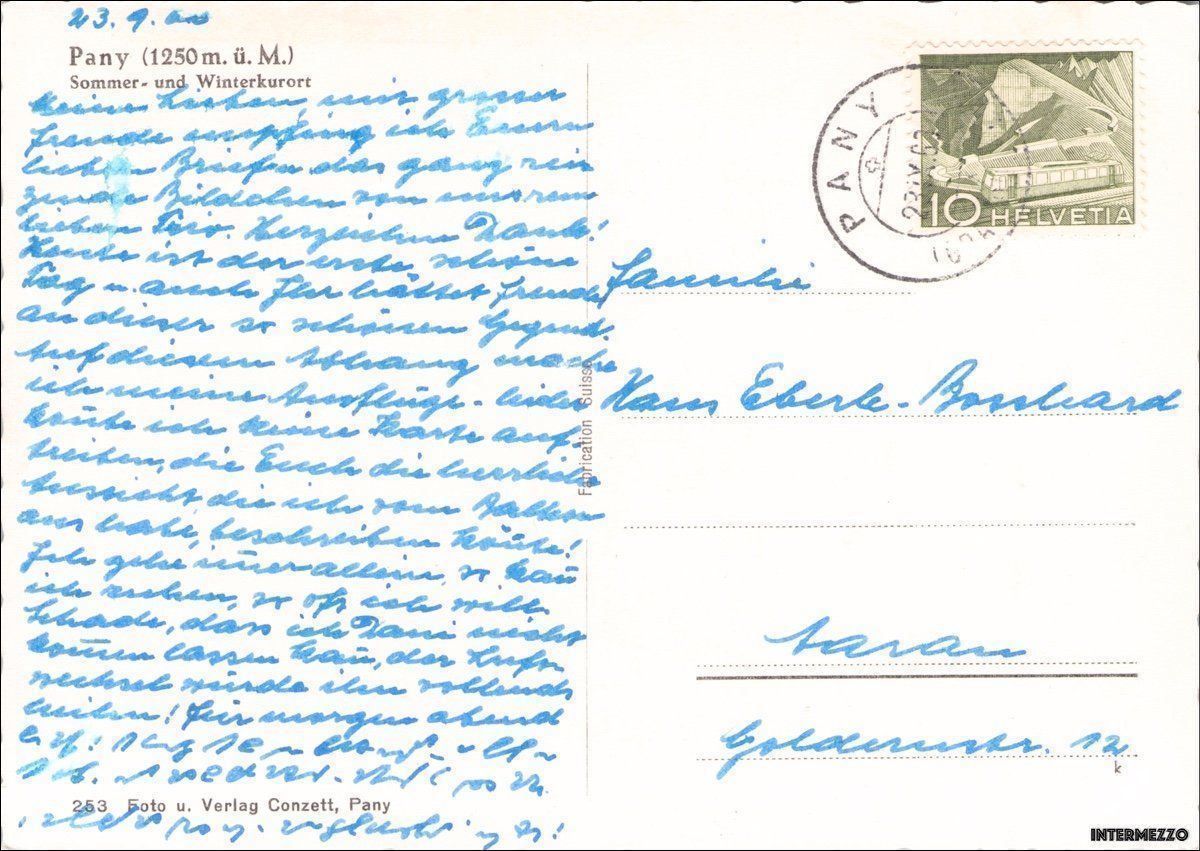 23. 9.
Pany (1250 m. ü. M.)
Sommer- und Winterkurort
Meine Lieben, mit grosser
Freude empfing ich Euern
lieben Brief u. das ganz rei
zende Bildchen von unserm
lieben Trio. Herzlichen Dank!
Heute ist der erste schöne
Tag u. auch Ihr hättet Freude
an dieser so schönen Gegend.
Auf diesem Abhang mache
ich meine Ausflüge - leider
konnte ich keine Karte auf-
treiben, die Euch die herrliche
Aussicht die ich vom Balkon
aus habe, beschreiben könnte!
Ich gehe immer allein, so kann
ich ruhen, so oft ich will.
Schade, dass ich Dani nicht
kommen lassen kann, der Luft-
wechsel würde ihn vollends
heilen! Für morgen abend
253 Foto u. Verlag Conzett, Pany
Fabrication Suisse
PANY
10 HELVETIA
Familie
Hans Eberle-Bosshard
Aarau
Goldernstr. 12
k
INTERMEZZO